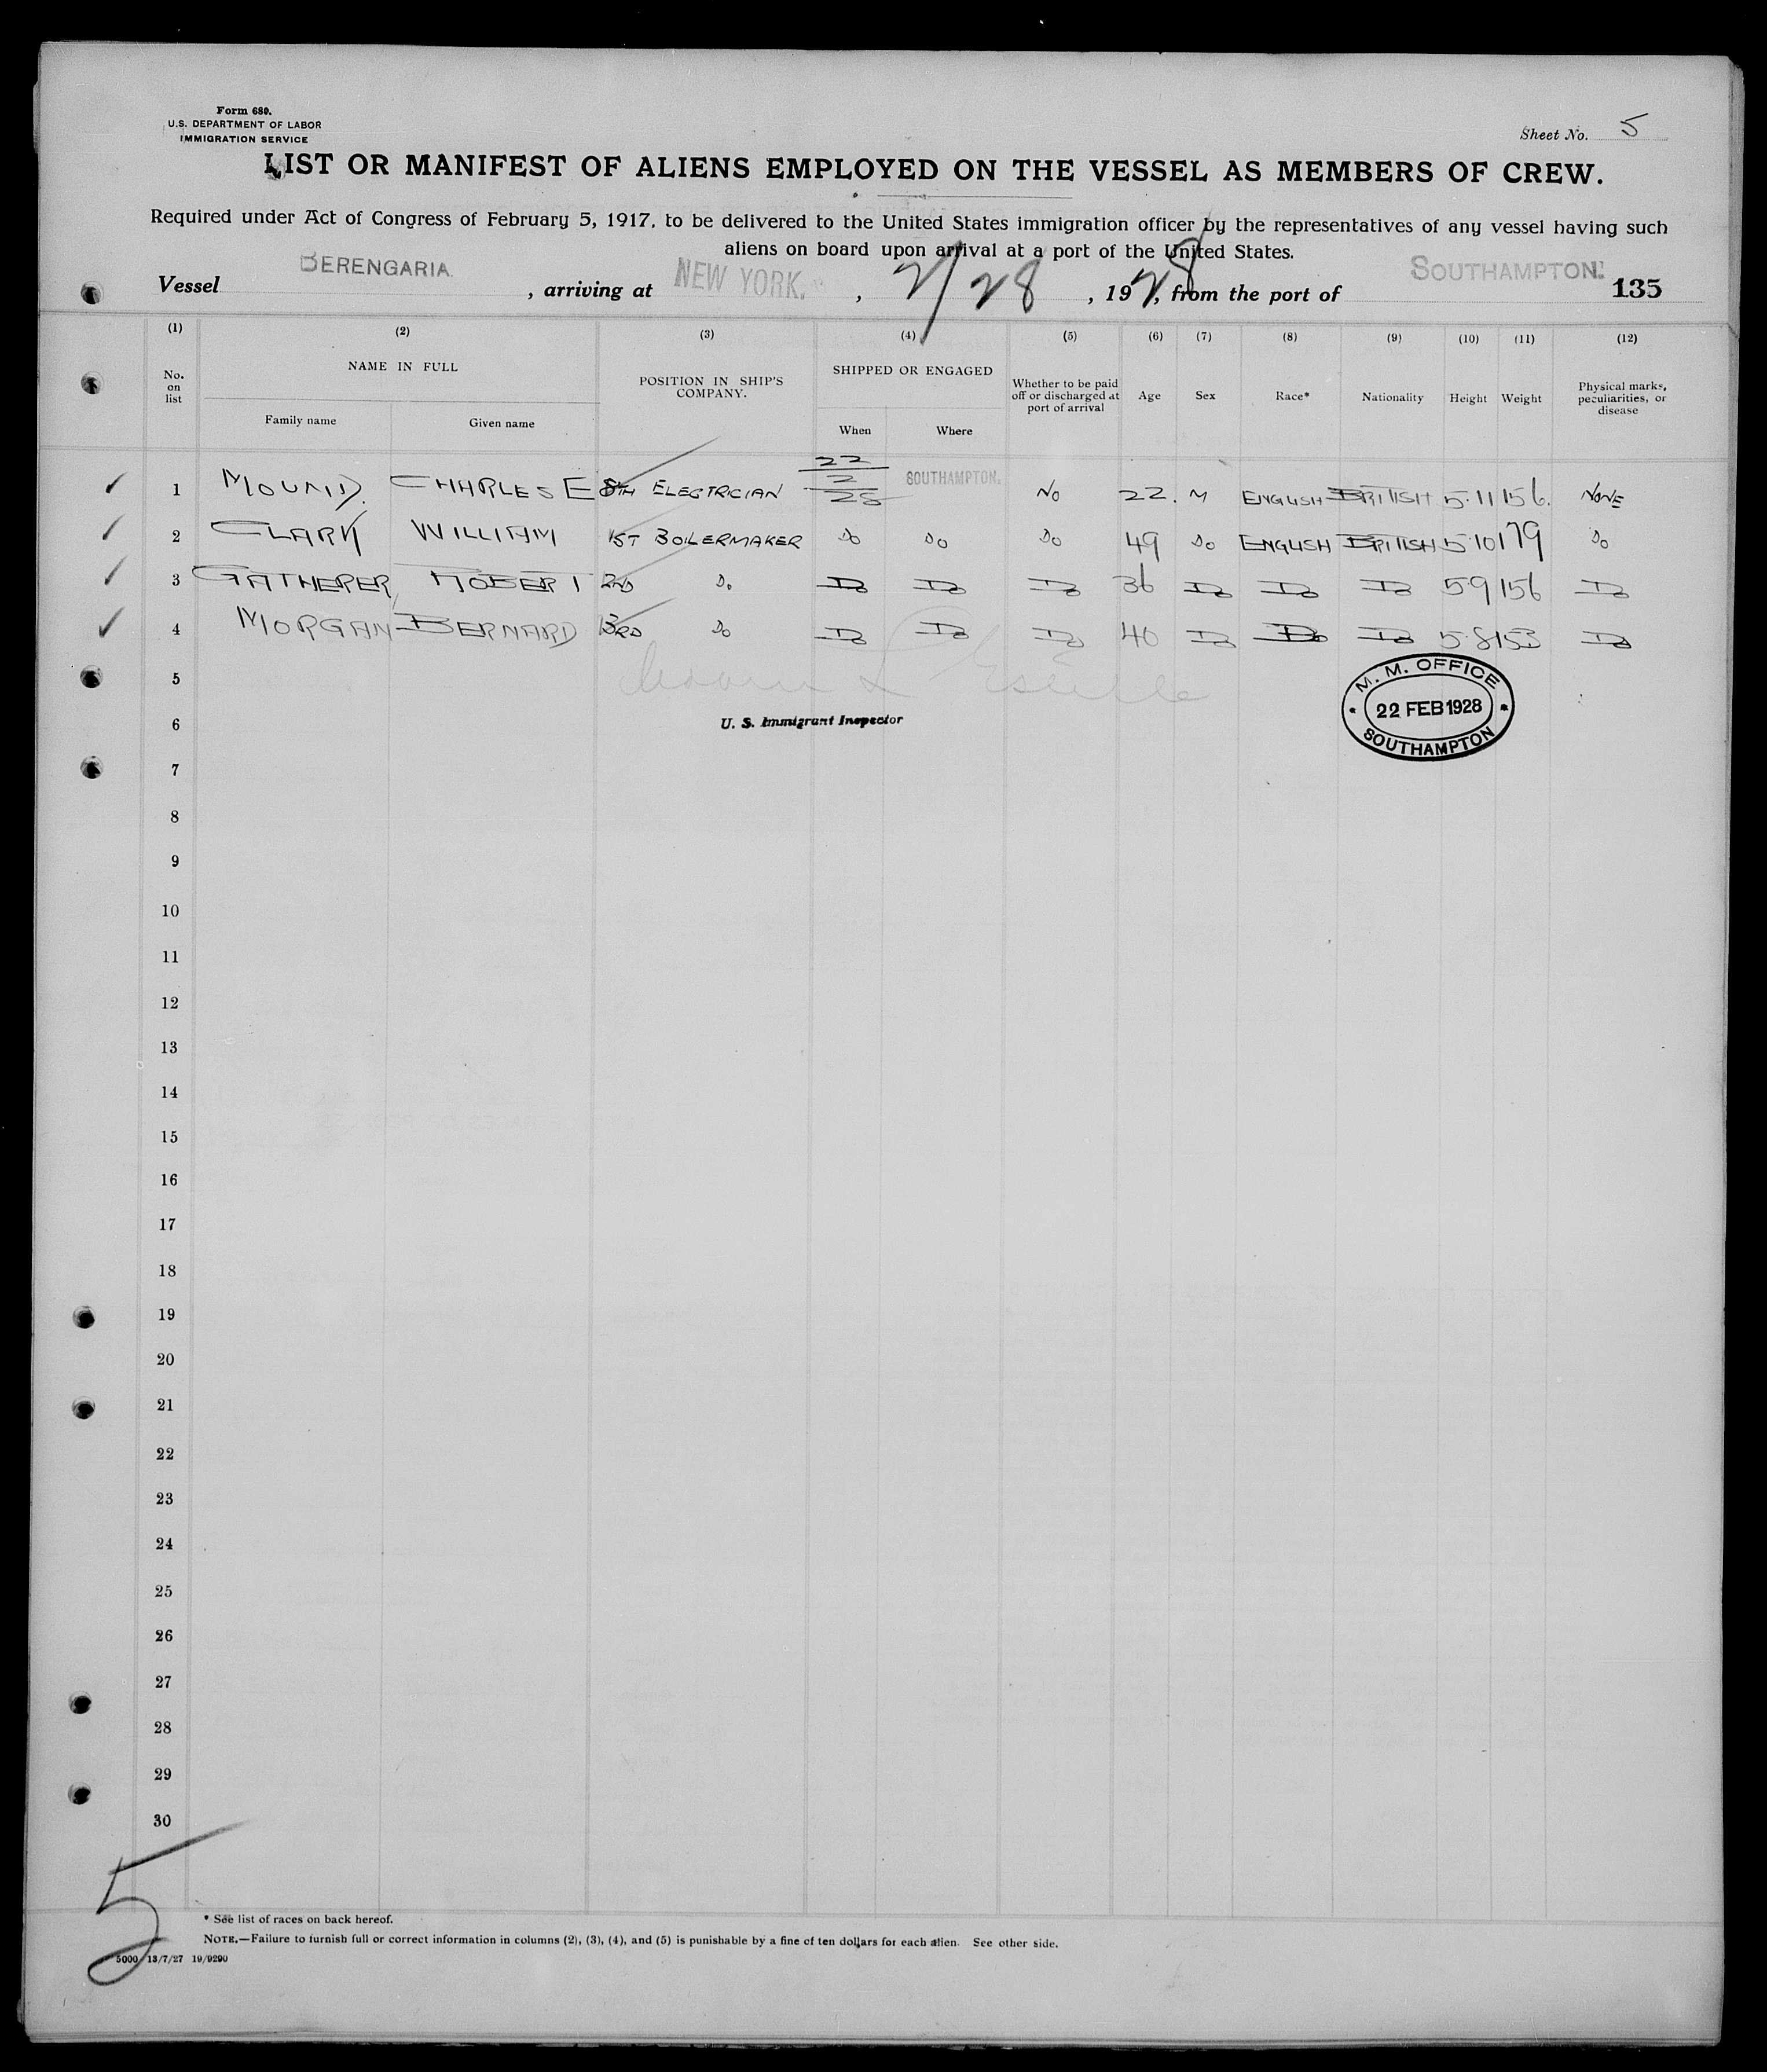 Form 680.
U.S. DEPARTMENT OF LABOR
IMMIGRATION SERVICE
Sheet No. 5
LIST OR MANIFEST OF ALIENS EMPLOYED ON THE VESSEL AS MEMBERS OF CREW.
Required under Act of Congress of February 5, 1917, to be delivered to the United States immigration officer by the representatives of any vessel having such
aliens on board upon arrival at a port of the United States.
Vessel BERENGARIA, arriving at NEW YORK., 2/28, 1928, from the port of SOUTHAMPTON. 135
(1) (2) (3) (4) (5) (6) (7) (8) (9) (10) (11) (12)
No. on list NAME IN FULL POSITION IN SHIP'S COMPANY. SHIPPED OR ENGAGED Whether to be paid off or discharged at port of arrival Age Sex Race* Nationality Height Weight Physical marks, peculiarities, or disease
Family name Given name When Where
1 MOUND. CHARLES E 8TH ELECTRICIAN 22/2/28 SOUTHAMPTON. NO 22. M ENGLISH BRITISH 5.11 156. NONE
2 CLARK WILLIAM 1ST BOILERMAKER DO DO DO 49 DO ENGLISH BRITISH 5.10 179 DO
3 GATHERER ROBERT 2ND DO DO DO DO 36 DO DO DO 5.9 156 DO
4 MORGAN BERNARD 3RD DO DO DO DO 40 DO DO DO 5.8 153 DO
5
M. M. OFFICE
22 FEB 1928
SOUTHAMPTON
6 U. S. Immigrant Inspector
7
8
9
10
11
12
13
14
15
16
17
18
19
20
21
22
23
24
25
26
27
28
29
30
5
* See list of races on back hereof.
NOTE.—Failure to furnish full or correct information in columns (2), (3), (4), and (5) is punishable by a fine of ten dollars for each alien. See other side.
5000 13/7/27 19/9290